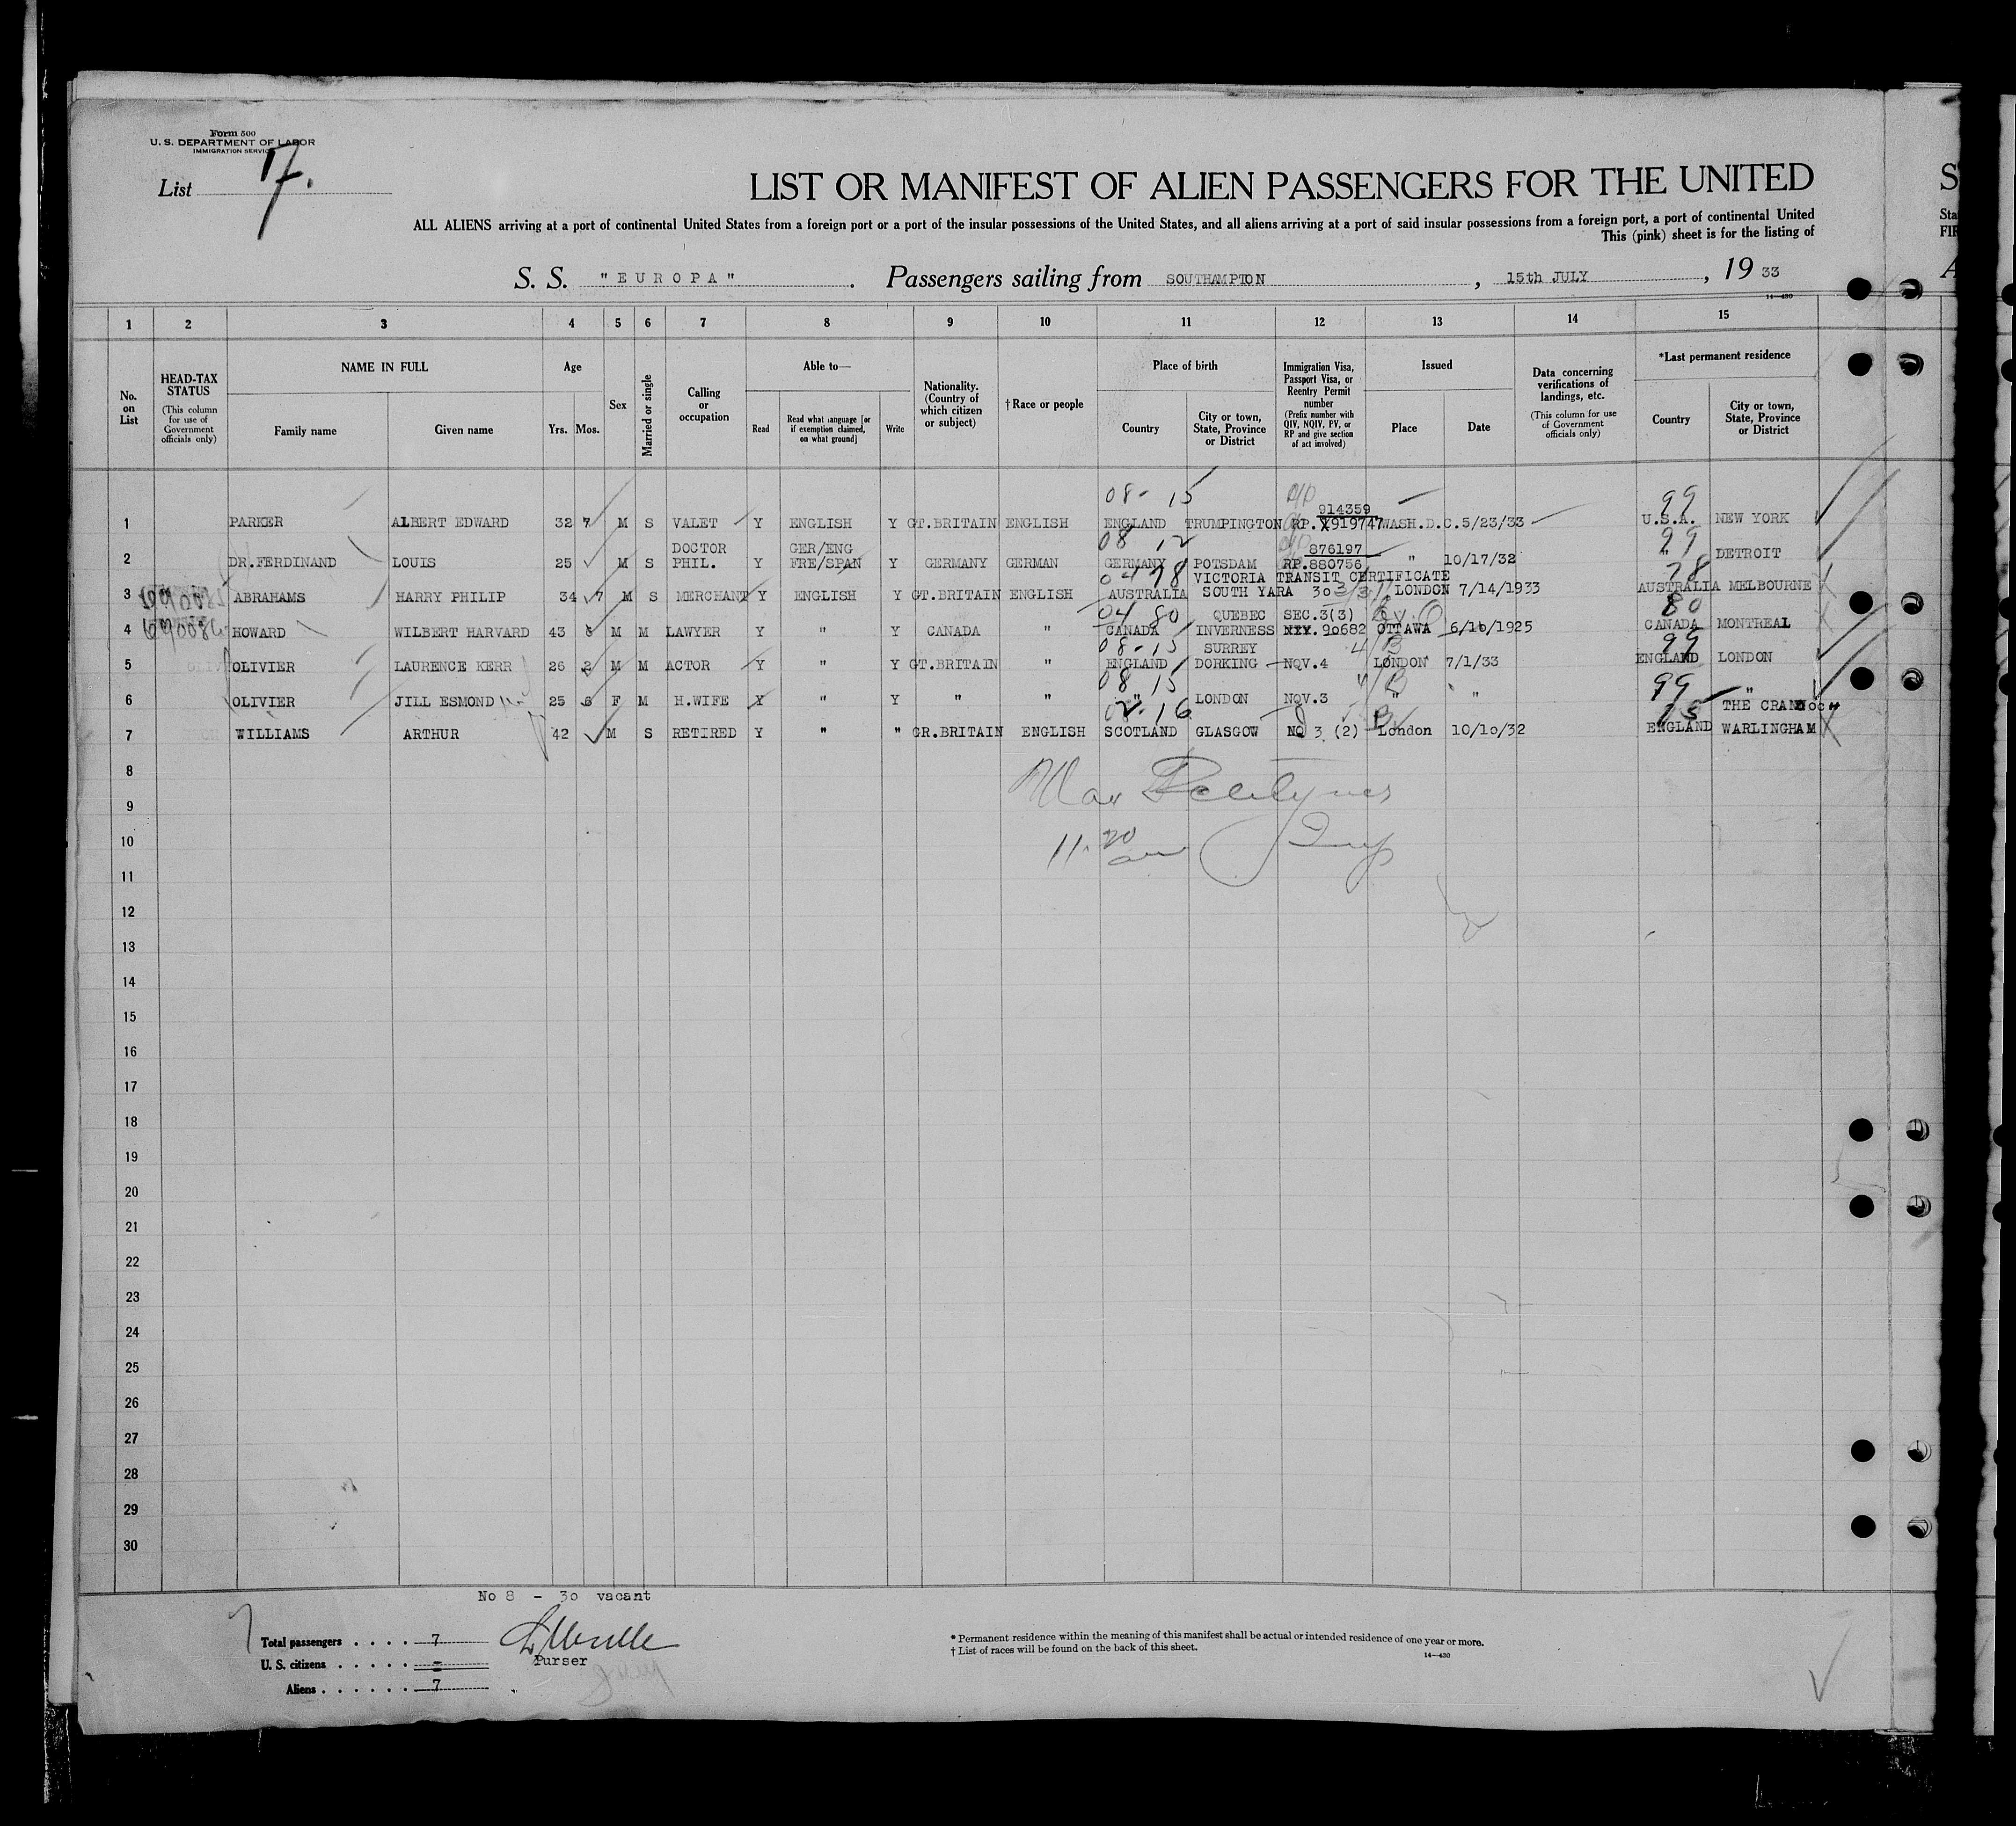 Form 500
U. S. DEPARTMENT OF LABOR
IMMIGRATION SERVICE
List 17.
LIST OR MANIFEST OF ALIEN PASSENGERS FOR THE UNITED
ALL ALIENS arriving at a port of continental United States from a foreign port or a port of the insular possessions of the United States, and all aliens arriving at a port of said insular possessions from a foreign port, a port of continental United
This (pink) sheet is for the listing of
S. S. "EUROPA". Passengers sailing from SOUTHAMPTON, 15th JULY, 19 33
14—430
1 2 3 4 5 6 7 8 9 10 11 12 13 14 15
No. on List
HEAD-TAX STATUS (This column for use of Government officials only)
NAME IN FULL Family name Given name
Age Yrs. Mos.
Sex
Married or single
Calling or occupation
Able to— Read Read what language [or if exemption claimed, on what ground] Write
Nationality. (Country of which citizen or subject)
† Race or people
Place of birth Country City or town, State, Province or District
Immigration Visa, Passport Visa, or Reentry Permit number (Prefix number with QIV, NQIV, PV, or RP and give section of act involved)
Issued Place Date
Data concerning verifications of landings, etc. (This column for use of Government officials only)
*Last permanent residence Country City or town, State, Province or District
08- 15 914359 99
1 PARKER ALBERT EDWARD 32 7 M S VALET Y ENGLISH Y GT.BRITAIN ENGLISH ENGLAND TRUMPINGTON RP. 919747 WASH.D.C. 5/23/33 U.S.A. NEW YORK
DOCTOR GER/ENG 08 12 876197 99
2 DR.FERDINAND LOUIS 25 M S PHIL. Y FRE/SPAN Y GERMANY GERMAN GERMANY POTSDAM RP.880756 " 10/17/32 " DETROIT
04 78 VICTORIA TRANSIT CERTIFICATE 78
3 ABRAHAMS HARRY PHILIP 34 7 M S MERCHANT Y ENGLISH Y GT.BRITAIN ENGLISH AUSTRALIA SOUTH YARA 303 LONDON 7/14/1933 AUSTRALIA MELBOURNE
04 80 QUEBEC SEC.3(3) 80
4 HOWARD WILBERT HARVARD 43 6 M M LAWYER Y " Y CANADA " CANADA INVERNESS 90682 OTTAWA 6/10/1925 CANADA MONTREAL
08-15 SURREY 99
5 OLIVIER LAURENCE KERR 26 2 M M ACTOR Y " Y GT.BRITAIN " ENGLAND DORKING NQV.4 LONDON 7/1/33 ENGLAND LONDON
08 15 99
6 OLIVIER JILL ESMOND 25 6 F M H.WIFE Y " Y " " " LONDON NQV.3 " " "
16 THE
7 WILLIAMS ARTHUR 42 M S RETIRED Y " " GR.BRITAIN ENGLISH SCOTLAND GLASGOW NQ 3 (2) London 10/10/32 ENGLAND WARLINGHAM
8
9
10
11.20 am
11
12
13
14
15
16
17
18
19
20
21
22
23
24
25
26
27
28
29
30
No 8 - 30 vacant
Total passengers . . . . 7
U. S. citizens . . . . . -
Purser
Aliens . . . . . . 7
* Permanent residence within the meaning of this manifest shall be actual or intended residence of one year or more.
† List of races will be found on the back of this sheet.
14—430